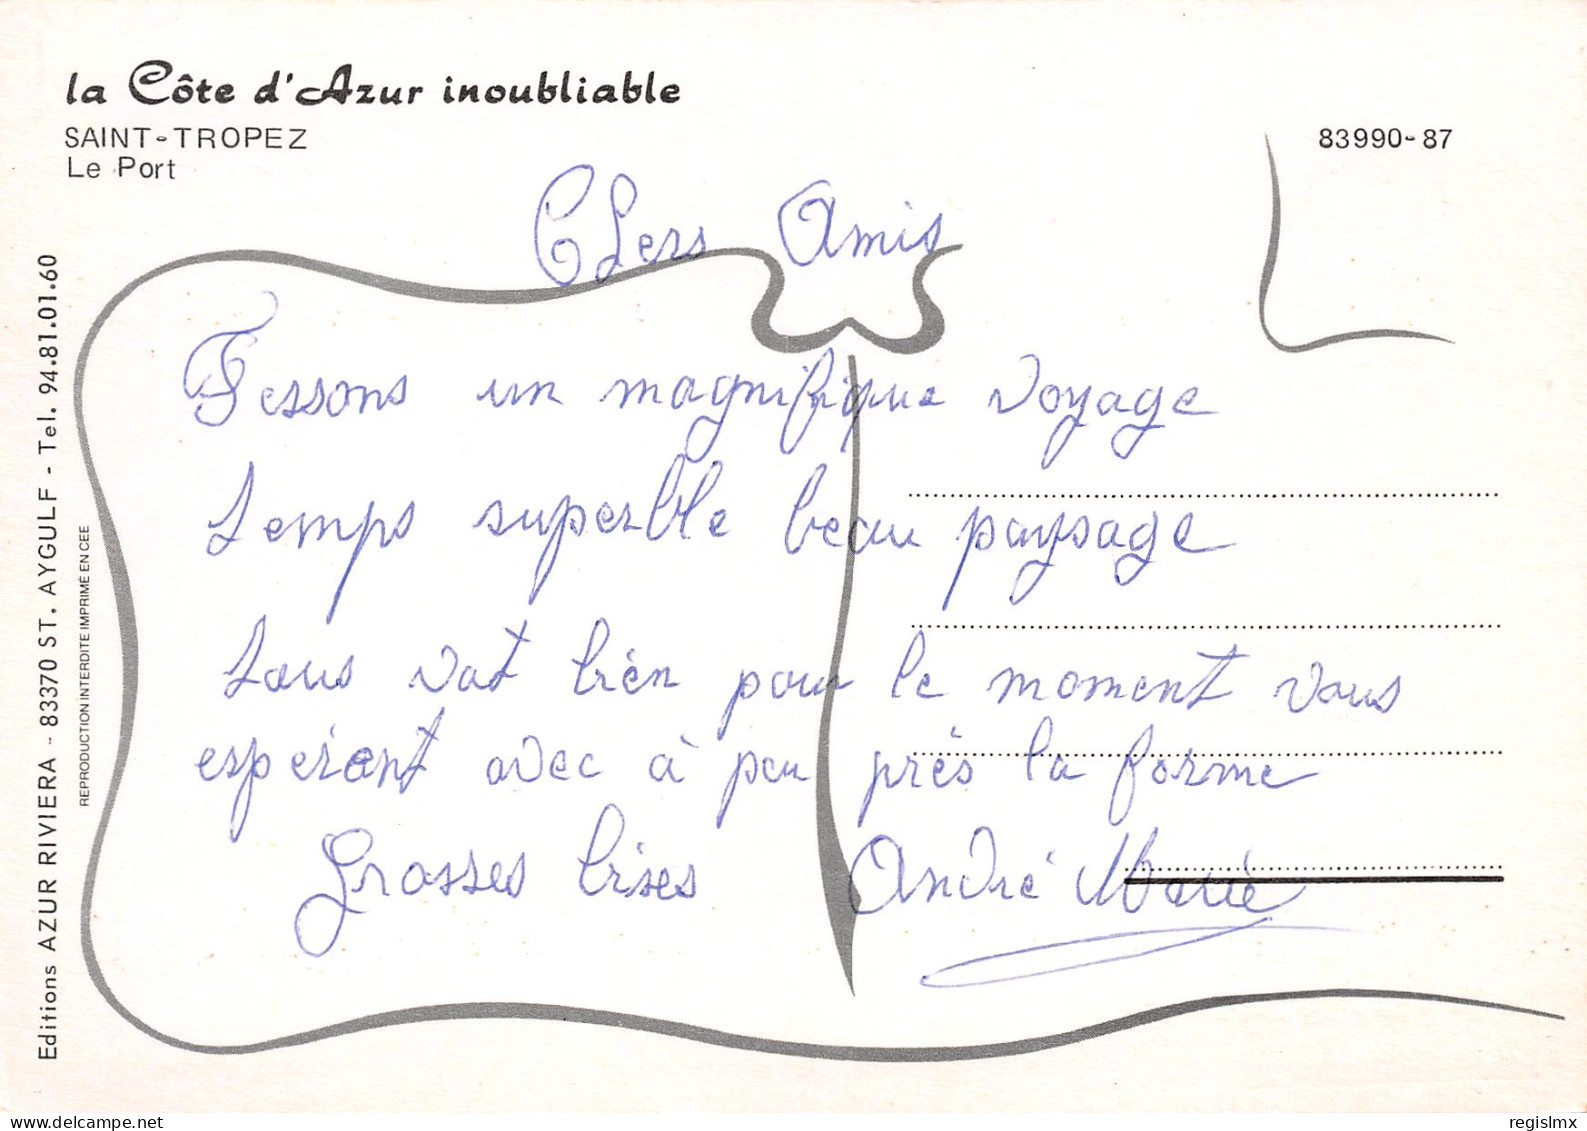 la Côte d'Azur inoubliable
SAINT-TROPEZ
Le Port
83990-87
Chers Amis
Fessons un magnifique voyage
temps superble beau paysage
tous vat bien pour le moment vous
espérent avec à peu près la forme
Grosses bises André Marie
Editions AZUR RIVIERA - 83370 ST. AYGULF - Tel. 94.81.01.60
REPRODUCTION INTERDITE IMPRIMÉ EN CEE
regislmx